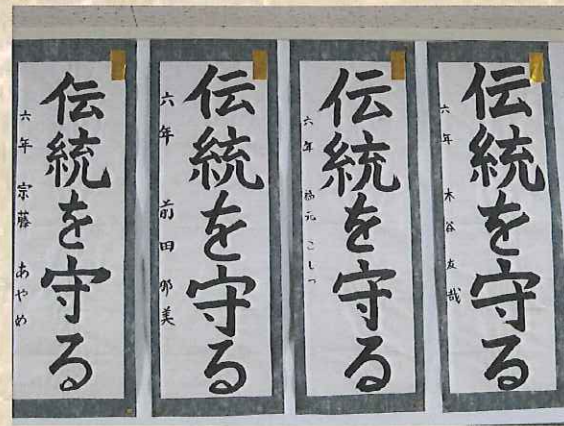 伝統を守る
六年 木谷友哉
伝統を守る
六年
伝統を守る
六年 前田 那美
伝統を守る
六年 宗藤 あやめ